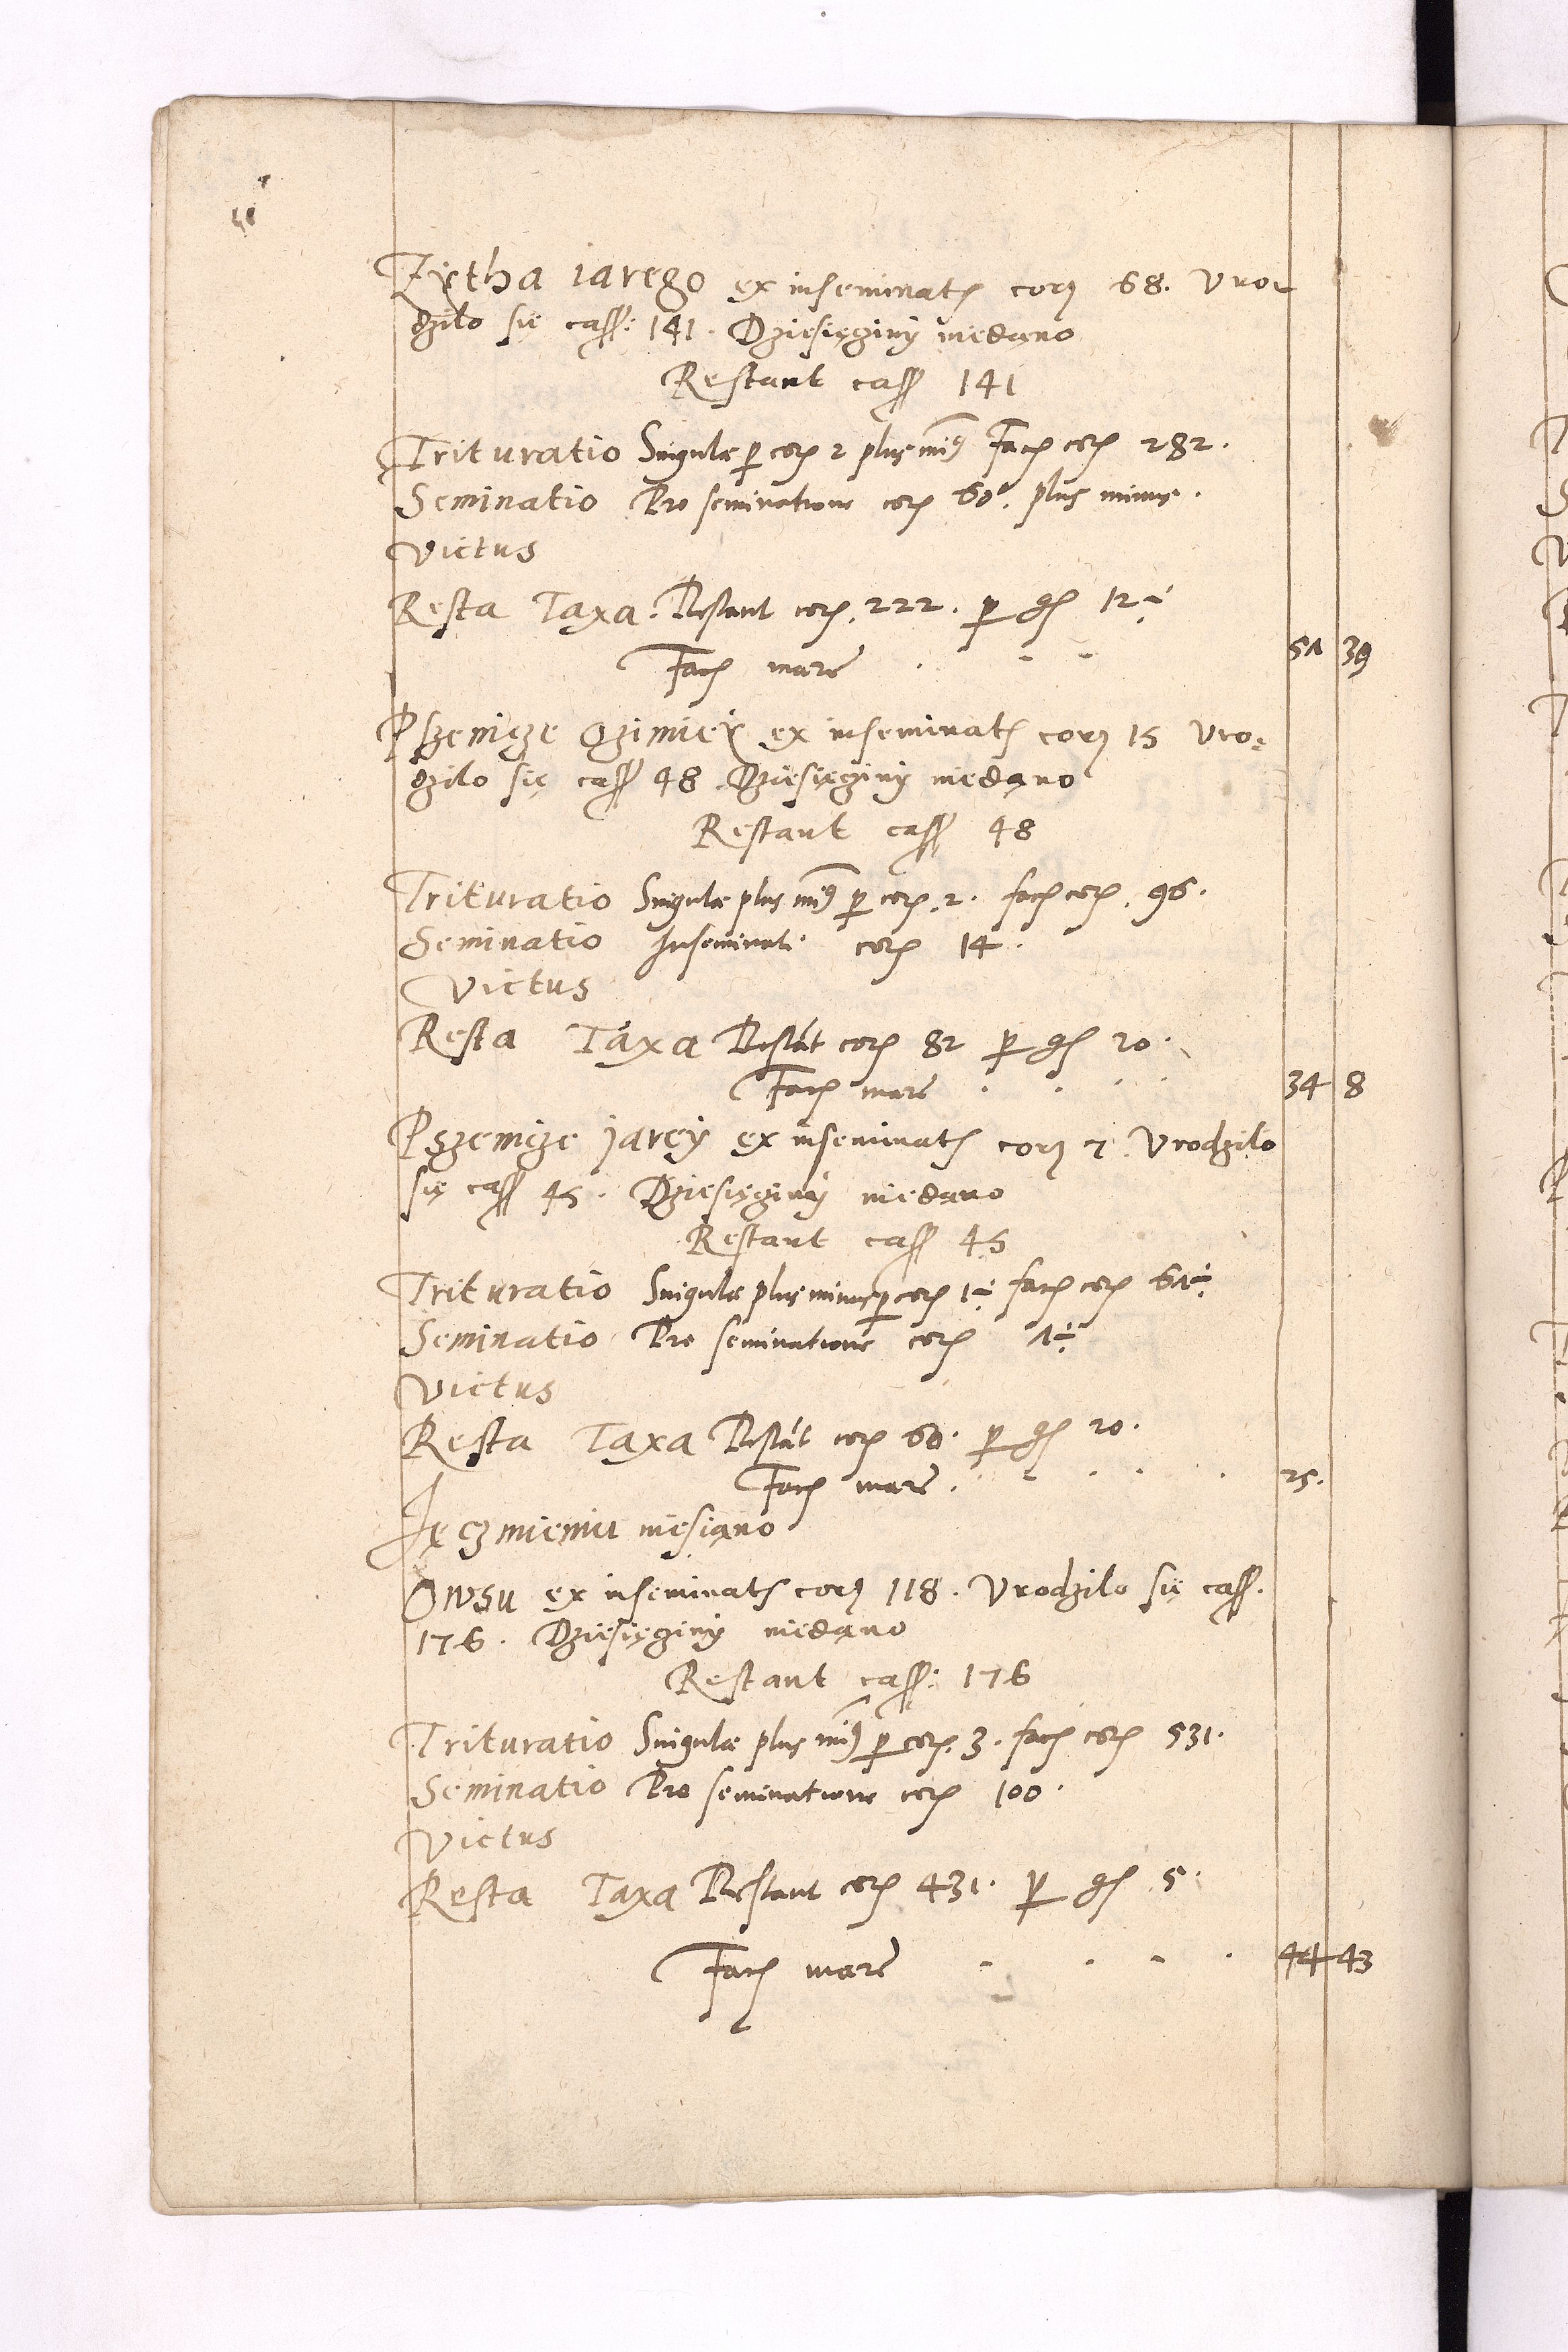 Zÿtha iarego ex inseminatꝭ corꝫ 68. Vro-
dzilo się cass: 141. Dziesięginÿ niedano
Restant cass 141
Trituratio Singulæ ꝑ corꝭ 2 plus minꝰ Facꝭ corꝭ 282.
Seminatio Pro seminatione corꝭ 60. plus minus.
Victus
Resta Taxa. Restant corꝭ. 222. ꝑ gꝭ 12÷
Facꝭ marc . - - 51 39
Pszenicze Ozimieÿ ex inseminatꝭ corꝫ 15 Vro-
dzilo się cass 48 Dziesięginÿ niedano
Restant cass 48
Trituratio Singulæ plus minꝰ ꝑ corꝭ. 2. facꝭ corꝭ. 96.
Seminatio Inseminati corꝭ 14.
Victus
Resta Taxa Restāt corꝭ 82 ꝑ gꝭ 20.
Facꝭ marc . . . . 34 8
Pszenicze jareÿ ex inseminatꝭ corꝫ 7. Vrodzilo
się cass 45. Dziesięginÿ niedano
Restant cass 45
Trituratio Singulæ plus minus ꝑ corꝭ 1÷ facꝭ corꝭ 61÷
Seminatio Pro seminatione corꝭ 1÷
Victus
Resta Taxa Restāt corꝭ 60. ꝑ gꝭ 20.
Facꝭ marc . . - . . . 25.
Jęczmieniu niesiano
Owsu ex inseminatꝭ corꝫ 118. Vrodzilo się cass.
176. Dziesięginÿ niedano
Restant cass: 176
Trituratio Singulæ plus minꝰ ꝑ corꝭ. 3. facꝭ corꝭ 531.
Seminatio Pro seminatione corꝭ 100.
Victus
Resta Taxa Restant corꝭ 431. ꝑ gꝭ 5.
Facꝭ marc - . - . 44 43